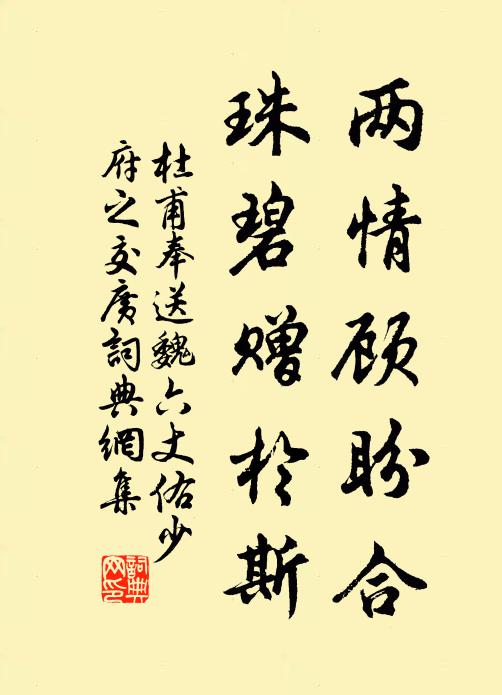 两情顾盼合
珠碧赠於斯
杜甫奉送魏六丈佑少
府之交广詞典網集
詞典
网印